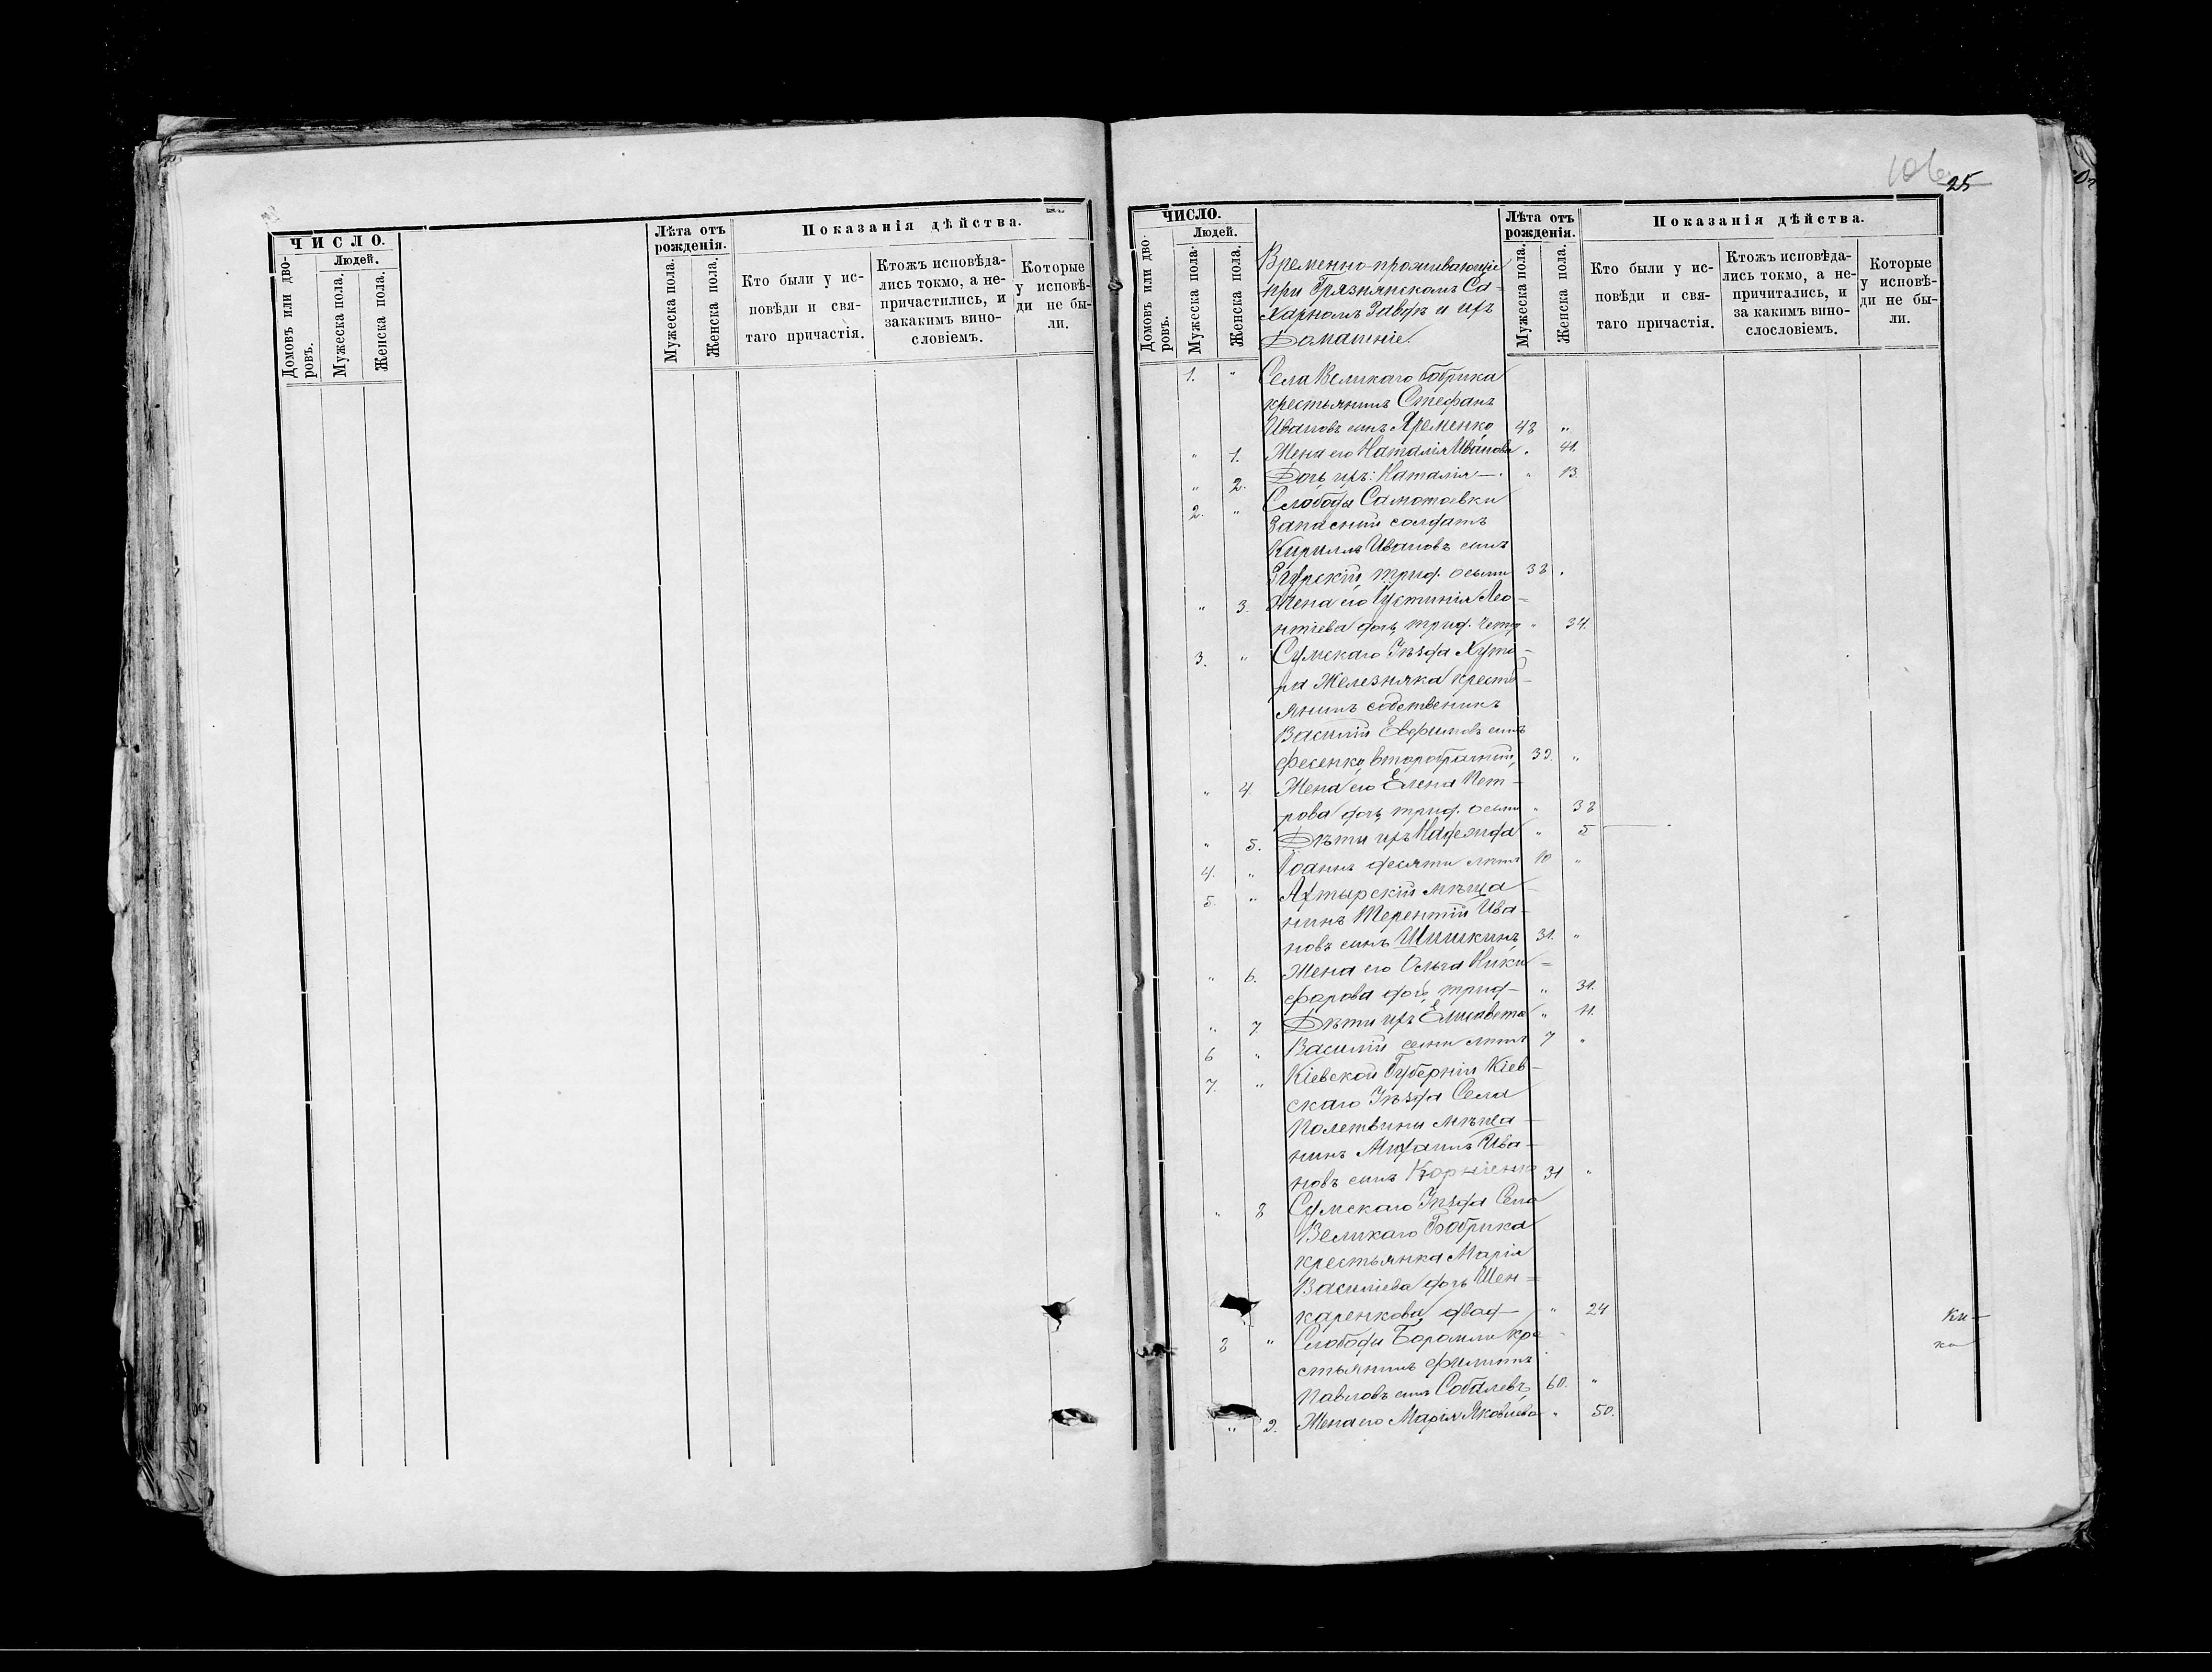 106 25
ЧИСЛО.
Людей.
Домовъ или дворовъ.
Мужеска пола.
Женска пола.
Лѣта отъ
рожденія.
Мужеска пола.
Женска пола.
Показанія дѣйства.
Кто были у ис-
повѣди и свя-
таго причастія.
Ктожъ исповѣда-
лись токмо, а не-
причастились, и
закакимъ вино-
словіемъ.
Которые
у исповѣ-
ди не бы-
ли.
ЧИСЛО.
Людей.
Домовъ или дво-
ровъ.
Мужеска пола.
Женска пола.
Временно-проживающіе
при Грязнянскомъ Са-
харномъ Заводѣ и ихъ
Домашніе.
Лѣта отъ
рожденія.
Мужеска пола.
Женска пола.
Показанія дѣйства.
Кто были у ис-
повѣди и свя-
таго причастія.
Ктожъ исповѣда-
лись токмо, а не-
причитались, и
за какимъ вино-
слословіемъ.
Которые
у исповѣ-
ди не бы-
ли.
1. " Села Великаго Бобрика
крестьянинъ Стефанъ
Ивановъ сынъ Яременко 48 "
" 1. Жена его Наталія Иванова " 41.
" 2. Дочь ихъ: Наталія — " 13.
2. " Слободы Самотоевки
Запасный солдатъ
Кириллъ Ивановъ сынъ
Згурскій, трид. осьми 38 "
" 3. Жена его Іустинія Лео-
нтіева дочь, трид. четр " 34.
3. " Сумскаго Уѣзда Хуто-
ра Железняка крестъ-
янинъ собственикъ
Василій Евфимовъ сынъ
Фесенко, второбрачный, 39. "
" 4. Жена его Елена Пет-
рова дочь, трид. осьми " 38
" 5. Дѣти ихъ Надежда " 5
4. " Іоаннъ десяти лѣтъ 10 "
5. " Ахтырскій мѣща-
нинъ Терентій Ива-
новъ сынъ Шишкинъ 31. "
" 6. Жена его Ольга Ники-
форова дочь, трид— " 31.
" 7. Дѣти ихъ Елисавета " 11.
6 " Василій семи лѣтъ 7 "
7. " Кіевской Губерніи Кіев-
скаго Уѣзда Села
мѣща-
нинъ Михаилъ Ива-
новъ сынъ Корніенко 31 "
" 8 Сумскаго Уѣзда Села
Великаго Бобрика
крестьянка Марія
Василіева дочь Шен-
каренкова, двад— " 24
8 " Слободы Боромли кре-
стьянинъ Филиппъ
Павловъ сынъ Соболевъ, 60. "
" 9. Жена его Марія Яковлева " 50.